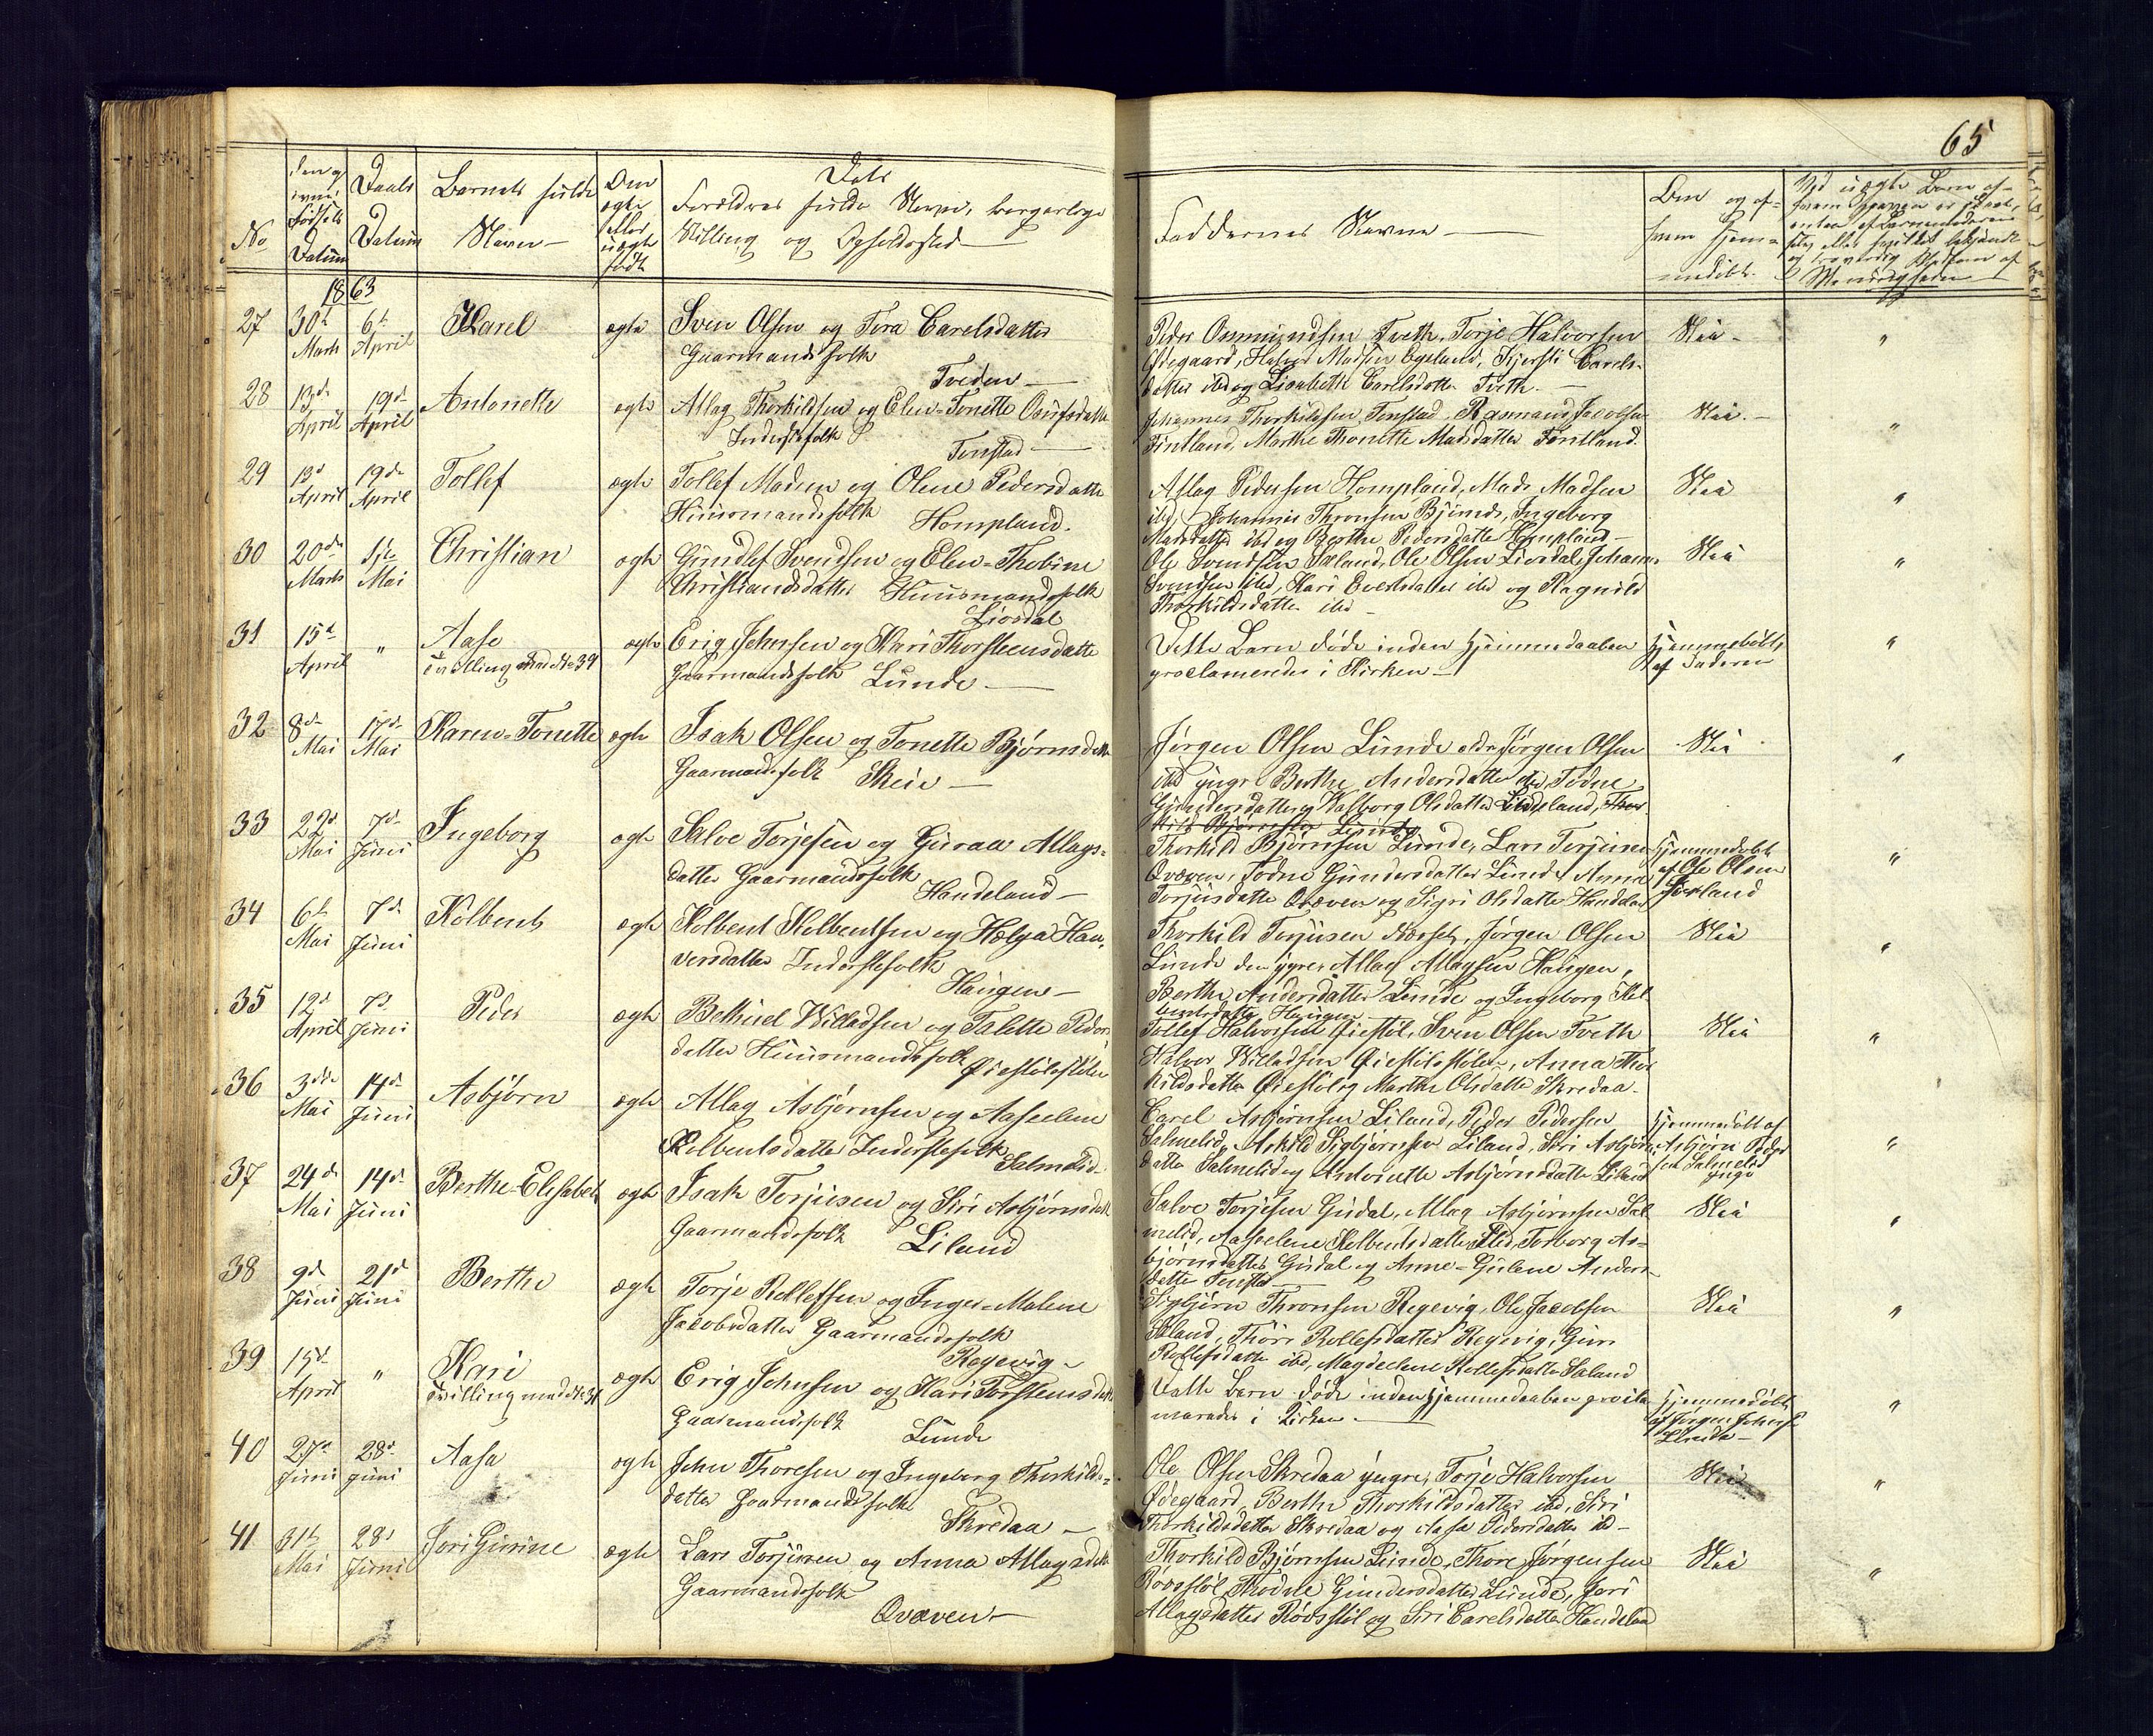 65
No
Fødsels
Datum
Daabs
Datum
Barnets fulde
Navn
Om
ægte
eller
uægte
født
Dets
Forældres fulde Navne, borgerlige
Stilling og Opholdssted
Faddernes Navne
Om og af
hvem hjem-
medøbt
1863
27
30te
Marts
6te
April
Karel
ægte
Sven Olsen og Tora Carelsdatter
Gaarmandsfolk
Tveden
Peder Ommundsen Tveth, Torje Halvorsen
Ødegaard, Halvor Madsen Egeland, Kjersti Carels-
datter ibd og Lisabeth Carelsdatter Tveth
Nei
"
28
13de
April
19de
April
Antonette
ægte
Atlag Thorkildsen og Elen-Tonette Osufsdatter
Inderstefolk
Tonstad
Johannes Thorkildsen Tonstad, Rasmus Jacobsen
Fintland, Marthe Thonette Madsdatter Fintland.
Nei
"
29
13d
April
19de
April
Tollef
ægte
Tollef Madsen og Olene Pedersdatter
Huusmandsfolk Hompland.
Aslag Pedersen Hompland, Mads Madsen
ibd, Johannes Thronsen Bjunes, Ingeborg
Madsdatter ibd og Berthe Pedersdatter Hompland
Nei
"
30
20de
Marts
Mai
Christian
ægte
Gundlef Svendsen og Elen-Thobine
Christiansdatter Huusmandsfolk
Liosdal
Ole Svendsen Sæland, Ole Olsen Liosdal, Johannes
Svendsen ibd, Kari Evertsdatter ibd og Ragnild
Thorkildsdatter ibd
Nei
"
31
15de
April
"
Aase
Tvilling med No 39
ægte
Erig Johnsen og Kari Thorsteensdatter
Gaarmandsfolk Lunde
Dette Barn døde inden Hjemmedaaben
proclameredes i Kirken
Hjemmedøbt
af Faderen
"
32
8de
Mai
17de
Mai
Karen-Tonette
ægte
Isak Olsen og Tonette Bjørnsdatter
Gaarmandsfolk Skeie
Jørgen Olsen Lunde ældre Jørgen Olsen
ibd yngre Berthe Andersdatter ibd, Todne
Gundersdatter og Walborg Olsdatter Lindeland, Thor-
kild Bjørnsen Lunde
Nei
"
33
22d
Mai
7de
Juni
Ingeborg
ægte
Salve Torjesen og Guraa Atlags-
datter Gaarmandsfolk
Handeland
Thorkild Bjørnsen Lunde, Lars Torjusen
Qvæven, Todne Gundersdatter Lunde, Anne
Torjusdatter Qvæven og Sigri Olsdatter Handeland
Hjemmedøbt
af Ole Olsen
"
34
6te
Mai
7de
Juni
Kolbent
ægte
Kolbent Kolbentsen og Helga Han-
versdatter Inderstefolk
Haugen
Thorkild Torjusen Josset, Jørgen Olsen
Lunde den yngre, Atlag Atlagsen Haugen,
Berthe Andersdatter Lunde og Ingeborg Kol-
bentsdatter Haugen
Nei
"
35
12d
April
7de
Juni
Peder
ægte
Bethuel Willadsen og Talette Peders-
datter Huusmandsfolk Øiestølstølen
Tollef Halvorsen Øiestøl, Sven Olsen Tveth
Halvor Willadsen Øiestølstølen, Anna Thor-
kildsdatter Øiestøl og Marthe Olsdatter Skredaa
Nei
"
36
3die
Mai
14de
Juni
Asbjørn
ægte
Atlag Asbjørnsen og Aaseelene
Kolbentsdatter Inderstefolk
Salmelid
Carel Asbjørnsen Liland, Peder Pedersen
Salmelid, Askild Sigbjørnsen Liland, Siri Asbjørns-
datter Salmelid og Antonette Asbjørnsdatter Liland
Hjemmedøbt af
Asbjørn Peder-
sen Salmelid
yngre
"
37
24de
Mai
14de
Juni
Berthe-Elisabet
ægte
Isak Torjusen og Siri Asbjørnsdatter
Gaarmandsfolk
Liland
Salve Torjesen Gudal, Atlag Asbjørnsen Sal-
melid, Aaseelene Kolbentsdatter ibid, Torborg As-
bjørnsdatter Gudal og Anne-Gulene Anders-
datter Tonstad
Nei
"
38
9de
Juni
21de
Juni
Berthe
ægte
Torje Rollefsen og Inger-Malene
Jacobsdatter Gaarmandsfolk
Regevig
Sigbjørn Thronsen Regevig, Ole Jacobsen
Haland, Thore Rollefsdatter Regevig, Guri
Rollefsdatter ibd, Magdelene Rollefsdatter Haland
Nei
"
39
15de
April
"
Kari
Tvilling med No 31
ægte
Erig Johnsen og Kari Torsteensdatter
Gaarmandsfolk
Lunde
Dette Barn døde inden Hjemmedaaben procla-
meredes i Kirken
Hjemmedøbt
af Jørgen Johnsen
Lunde
"
40
27de
Juni
28de
Juni
Aasa
ægte
John Thoresen og Ingeborg Thorkilds-
datter Gaarmandsfolk
Skredaa
Ole Olsen Skredaa yngre, Torje Halvorsen
Ødegaard, Berthe Thorkildsdatter ibd, Siri
Thorkildsdatter Skredaa og Aasa Pedersdatter ibd
Nei
"
41
31te
Mai
28de
Juni
Jori Gurine
ægte
Lars Torjusen og Anna Atlagsdatter
Gaarmandsfolk
Qvæven
Thorkild Bjørnsen Lunde, Thore Jørgensen
Røvsstøl, Thodne Gundersdatter Lunde, Jori
Atlagsdatter Røvsstøl og Siri Carelsdatter Handeland
Nei
"